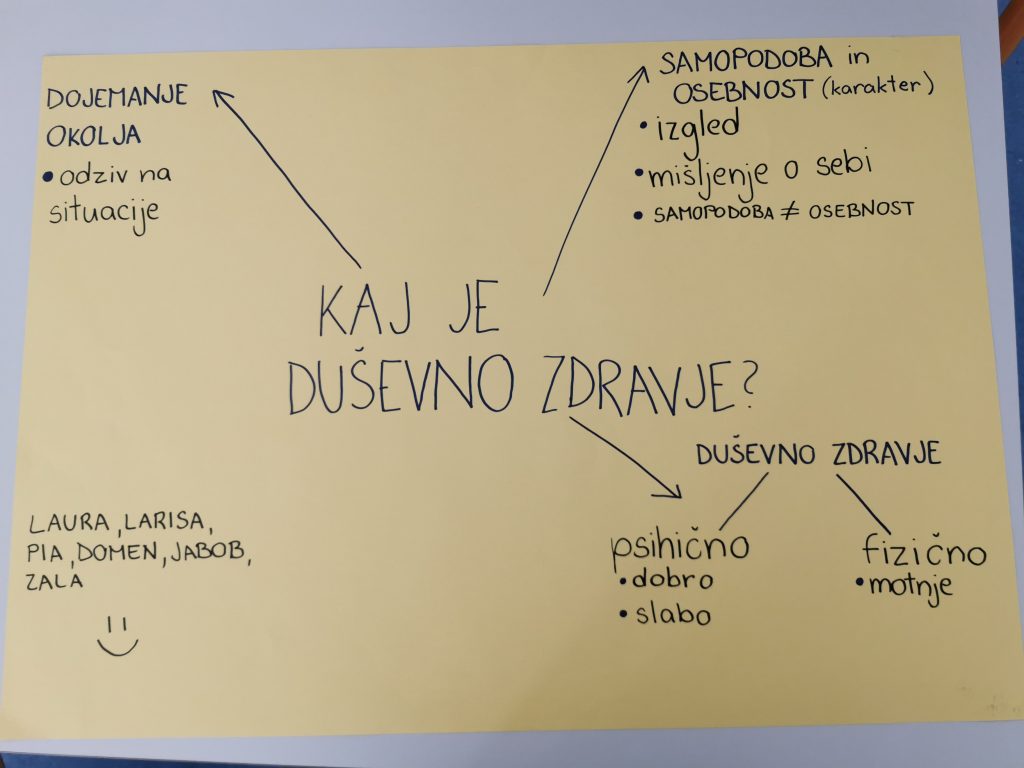 KAJ JE
DUŠEVNO ZDRAVJE?
DOJEMANJE
OKOLJA
• odziv na
situacije
SAMOPODOBA in
OSEBNOST (karakter)
• izgled
• mišljenje o sebi
• SAMOPODOBA ≠ OSEBNOST
DUŠEVNO ZDRAVJE
psihično
• dobro
• slabo
fizično
• motnje
LAURA, LARISA,
PIA, DOMEN, JABOB,
ZALA